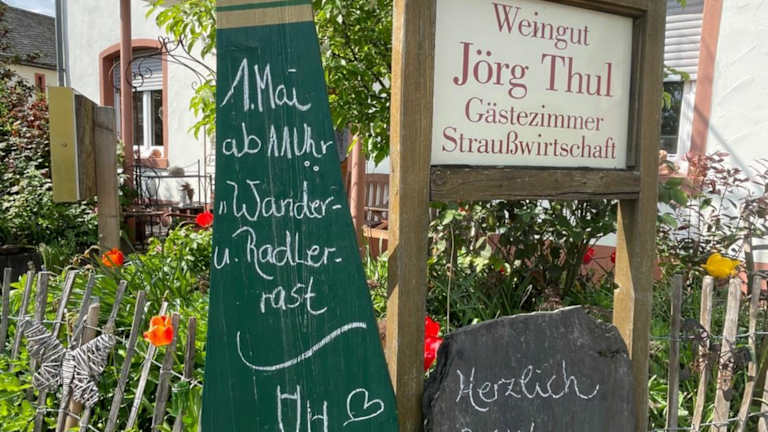 1. Mai
ab 11 Uhr
"Wander-
u. Radler-
rast
Weingut
Jörg Thul
Gästezimmer
Straußwirtschaft
Herzlich